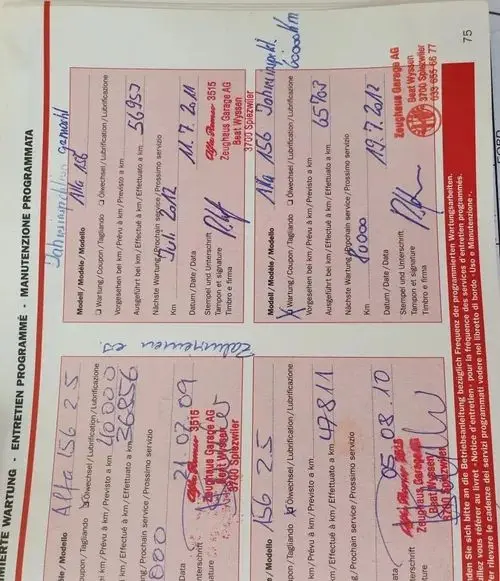 MIERTE WARTUNG · ENTRETIEN PROGRAMMÉ · MANUTENZIONE PROGRAMMATA
ll / Modèle / Modello Alfa 156 2.5
Coupon / Tagliando Ölwechsel / Lubrification / Lubrificazione
bei km / Prévu à km / Previsto a km 40000
km / Effectué à km / Effettuato a km 36856
ng / Prochain service / Prossimo servizio
0000
Data 21.07.09
nterschrift
gnature
Alfa Romeo 3515
Zeughaus Garage AG
Beat Wyssen
3700 Spiezwiler
Zahnriemen es.
Jahresinspektion gemacht
Modell / Modèle / Modello Alfa 156
Wartung / Coupon / Tagliando Ölwechsel / Lubrification / Lubrificazione
Vorgesehen bei km / Prévu à km / Previsto a km
Ausgeführt bei km / Effectué à km / Effettuato a km 56953
Nächste Wartung / Prochain service / Prossimo servizio
Km Juli 2012
Datum / Date / Data 11.7.2011
Stempel und Unterschrift
Tampon et signature
Timbro e firma
Alfa Romeo 3515
Zeughaus Garage AG
Beat Wyssen
3700 Spiezwiler
ll / Modèle / Modello 156 2.5
Coupon / Tagliando Ölwechsel / Lubrification / Lubrificazione
bei km / Prévu à km / Previsto a km
km / Effectué à km / Effettuato a km 47811
ng / Prochain service / Prossimo servizio
Data 05.08.10
nterschrift
signature
Alfa Romeo 3515
Zeughaus Garage AG
Beat Wyssen
3700 Spiezwiler
Modell / Modèle / Modello Alfa 156 Jahresinspekt.
Wartung / Coupon / Tagliando Ölwechsel / Lubrification / Lubrificazione
Vorgesehen bei km / Prévu à km / Previsto a km
Ausgeführt bei km / Effectué à km / Effettuato a km 65763
Nächste Wartung / Prochain service / Prossimo servizio
Km
Datum / Date / Data 19.7.2012
Stempel und Unterschrift
Tampon et signature
Timbro e firma
Zeughaus Garage AG
Beat Wyssen
3700 Spiezwiler
033 655 66 77
nden Sie sich bitte an die Betriebsanleitung bezüglich Frequenz der programmierten Wartungsarbeiten.
uillez vous référer au livret «Notice d'entretien» pour la fréquence des services d'entretien programmés.
r rilevare le cadenze dei servizi programmati vedere nel libretto di bordo «Uso e Manutenzione».
75